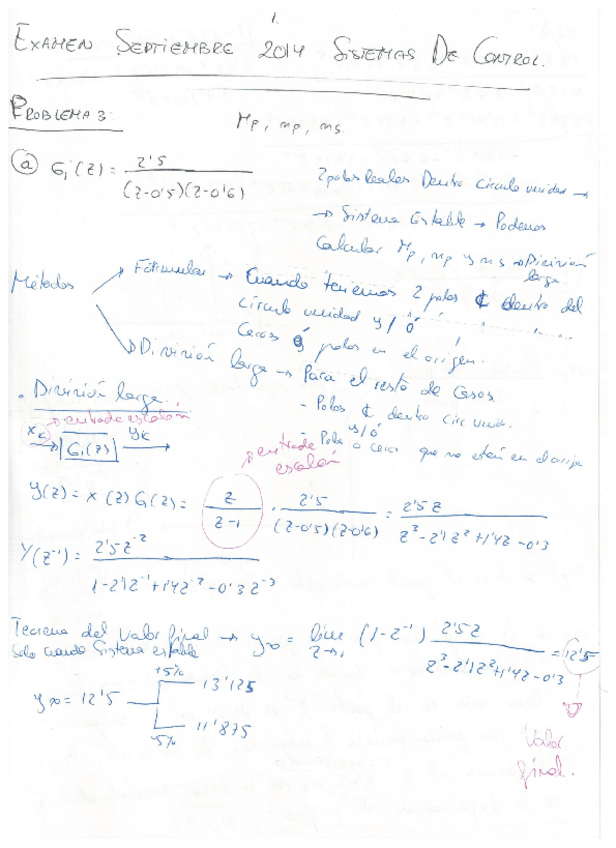 1.
EXAMEN SEPTIEMBRE 2014 SISTEMAS DE CONTROL.
PROBLEMA 3:
Mp, mp, ms.
(a) G1(z) = 2'5 / (z-0'5)(z-0'6)
2 polos Reales Dentro circulo unidad →
→ Sistema Estable → Podemos
Calcular Mp, mp y ms → División
larga.
Métodos
Fórmulas → Cuando tenemos 2 polos ₵ dentro del
círculo unidad y/ó
Ceros ó polos en el origen.
División larga → Para el resto de Casos
- Polos ₵ dentro circ unida.
y/ó
- Polos o ceros que no estén en el orige
• División larga.
→ entrada escalón
xk G1(z) yk
→ entrada
escalón
Y(z) = X(z) G(z) = z / z-1 · 2'5 / (z-0'5)(z-0'6) = 2'5 z / z³-2'1z²+1'4z-0'3
Y(z⁻¹) = 2'5z⁻² / 1-2'1z⁻¹+1'4z⁻²-0'3z⁻³
Teorema del Valor final → y∞ = lim z→1 (1-z⁻¹) 2'5z / z³-2'1z²+1'4z-0'3 = 12'5
Solo cuando Sistema estable
+5% 13'125
y∞ = 12'5
-5% 11'875
Valor
final.